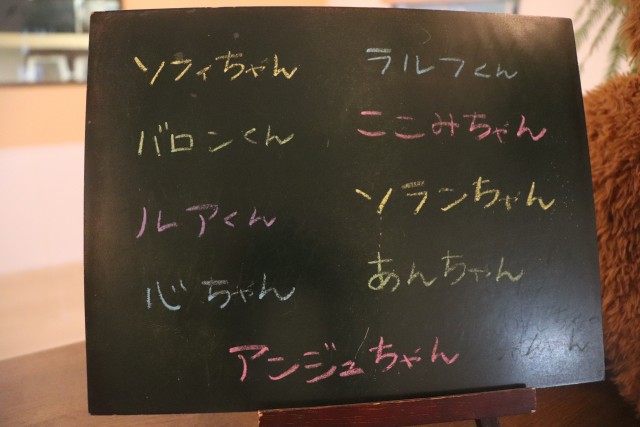 ソフィちゃん
ラルフくん
バロンくん
ここみちゃん
ルアくん
ソランちゃん
心ちゃん
あんちゃん
アンジュちゃん